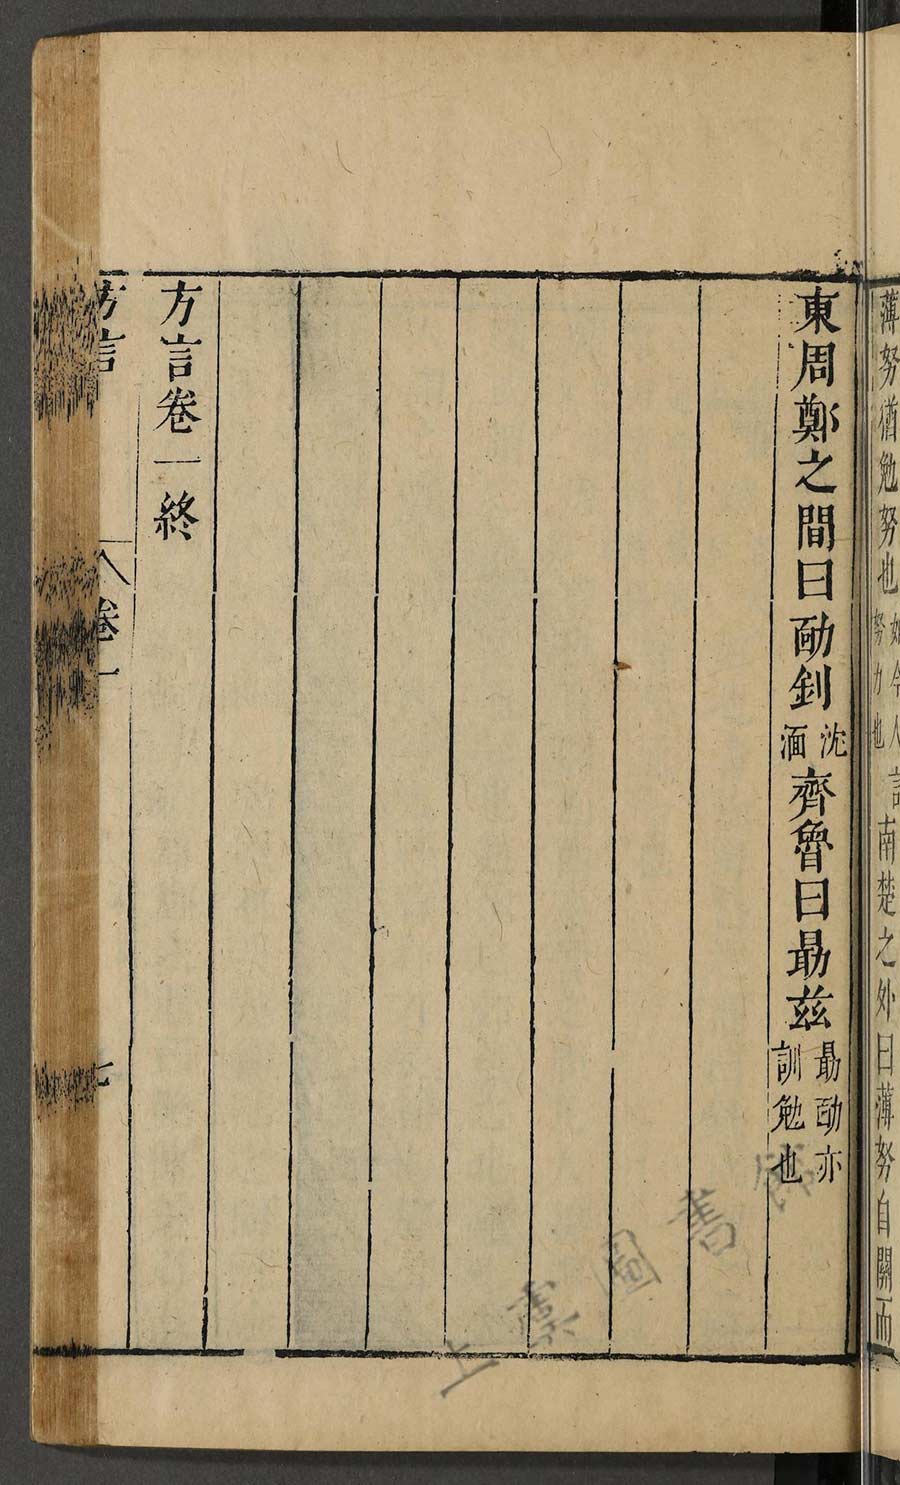 薄努猶勉努也如今人
努力也
南楚之外曰薄努自關而
東周鄭之間曰勔釗沈湎齊魯曰勗茲勗勔亦訓勉也
方言卷一終
方言 卷一 七
上虞圖書館